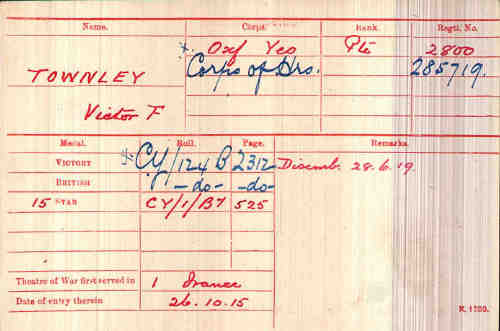 Name. Corps. Rank. Regtl. No.
* Oxf Yeo Pte 2800
TOWNLEY Corps of Hrs. 285719.
Victor F
Medal. Roll. Page. Remarks.
VICTORY * CY/124 B 2312 Disemb. 28.6.19.
BRITISH -do- -do-
15 STAR CY/1/B7 525
Theatre of War first served in 1 France
Date of entry therein 26.10.15
K. 1780.